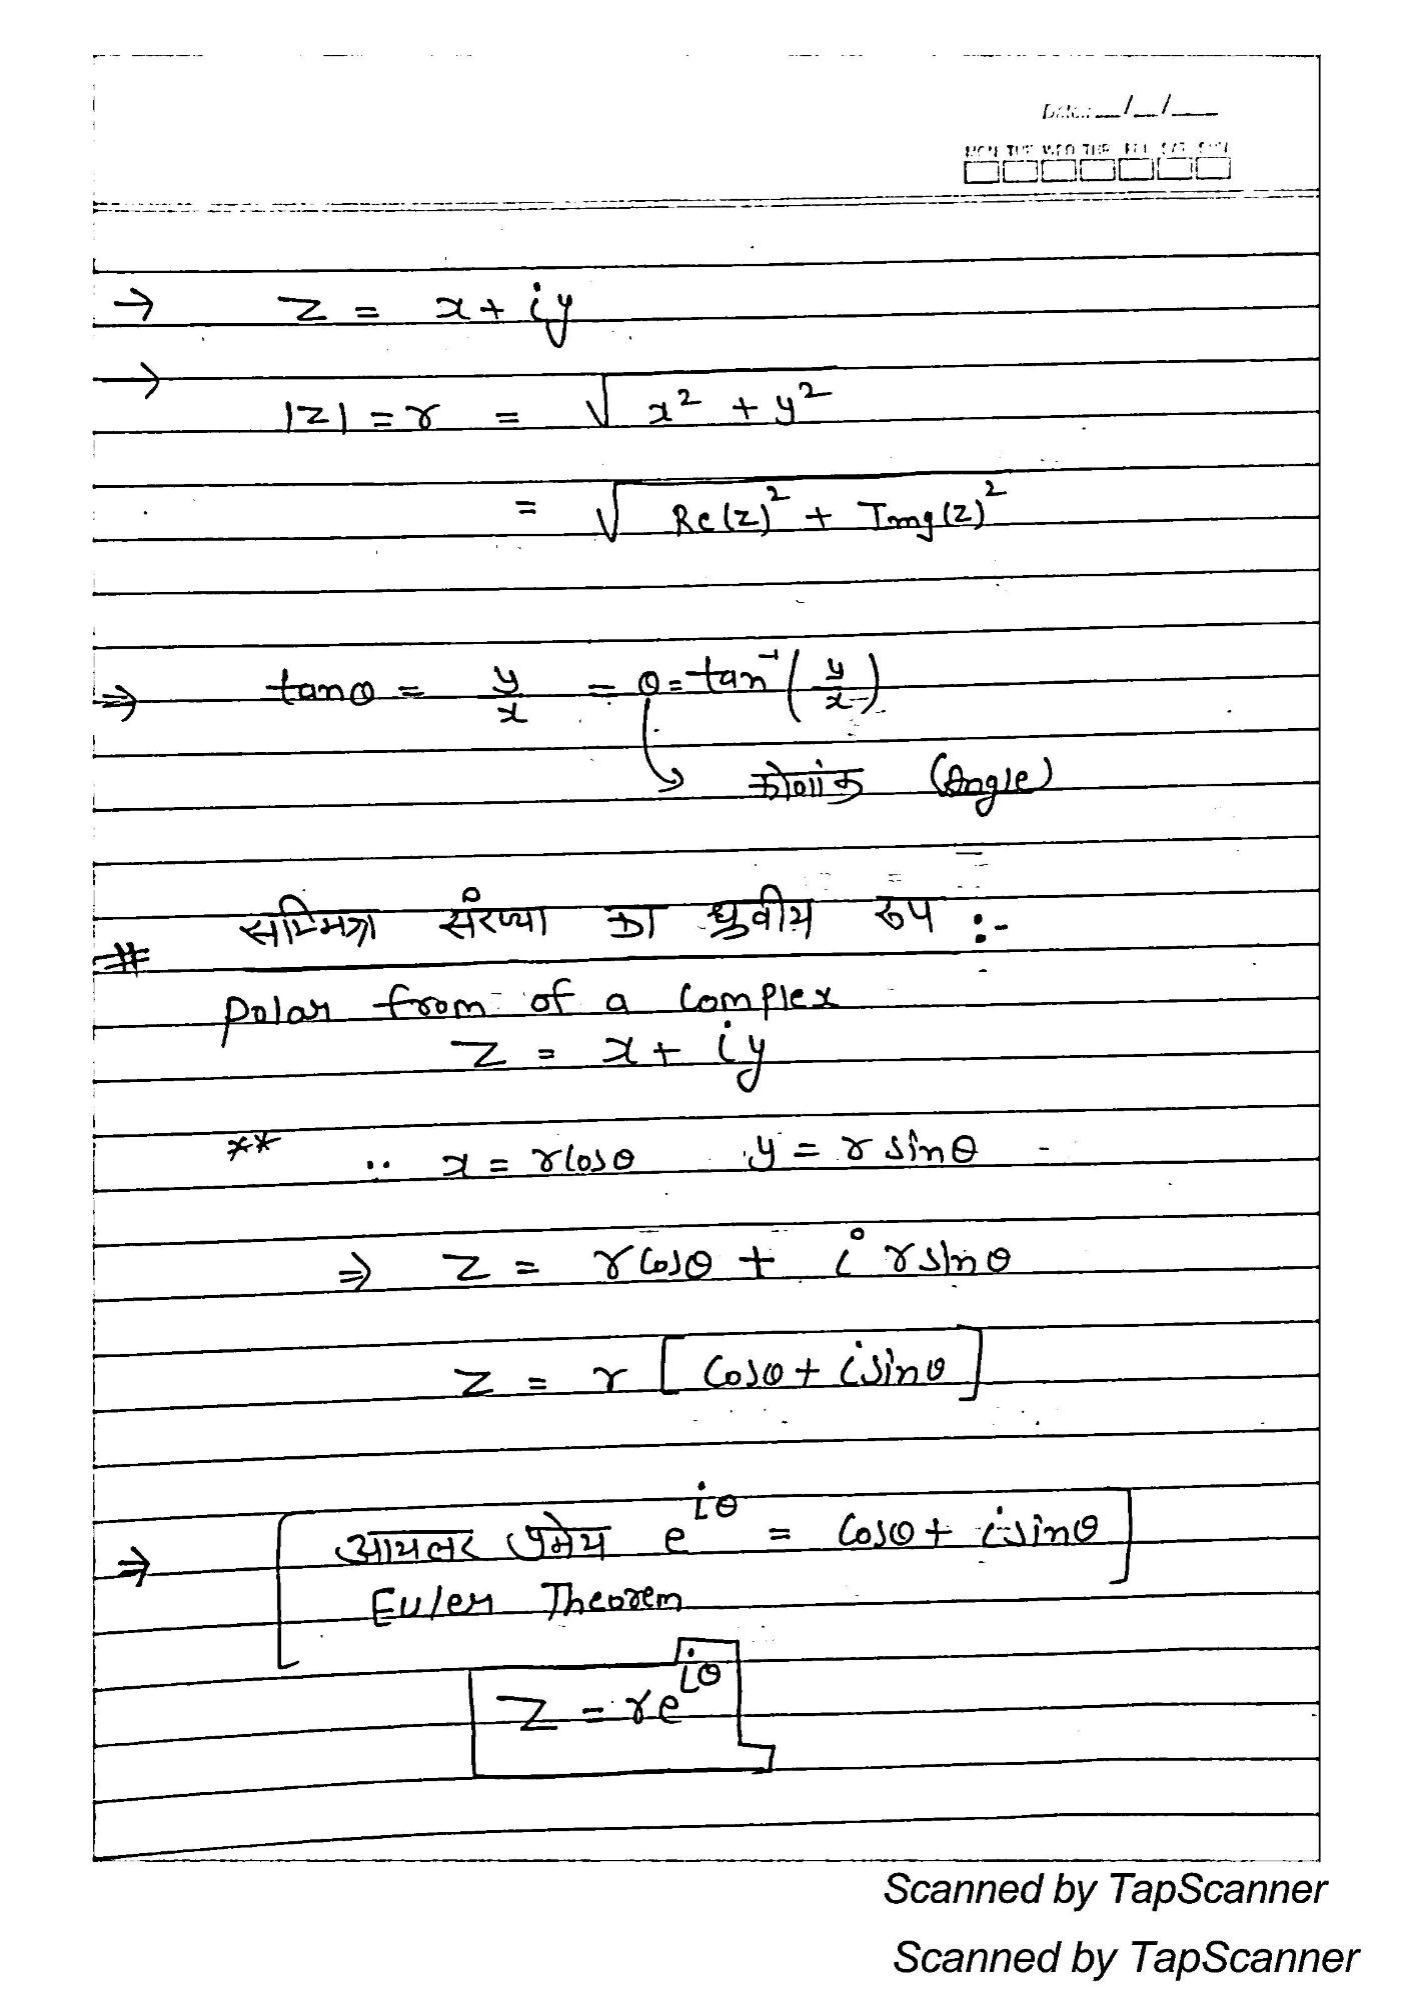 Date: __/__/__
MON TUE WED THR FRI SAT SUN
→ Z = x + iy
→ |Z| = r = √x² + y²
= √Re(z)² + Img(z)²
⇒ tanθ = y/x = θ = tan⁻¹(y/x)
कोणांक (Angle)
# सम्मिश्र संख्या का ध्रुवीय रूप :-
Polar from of a Complex
Z = x + iy
** ∵ x = rcosθ y = r sinθ
⇒ Z = rcosθ + i rsinθ
Z = r [cosθ + isinθ]
⇒ [आयलर प्रमेय e^iθ = cosθ + isinθ]
Euler Theorem
Z = re^iθ
Scanned by TapScanner
Scanned by TapScanner